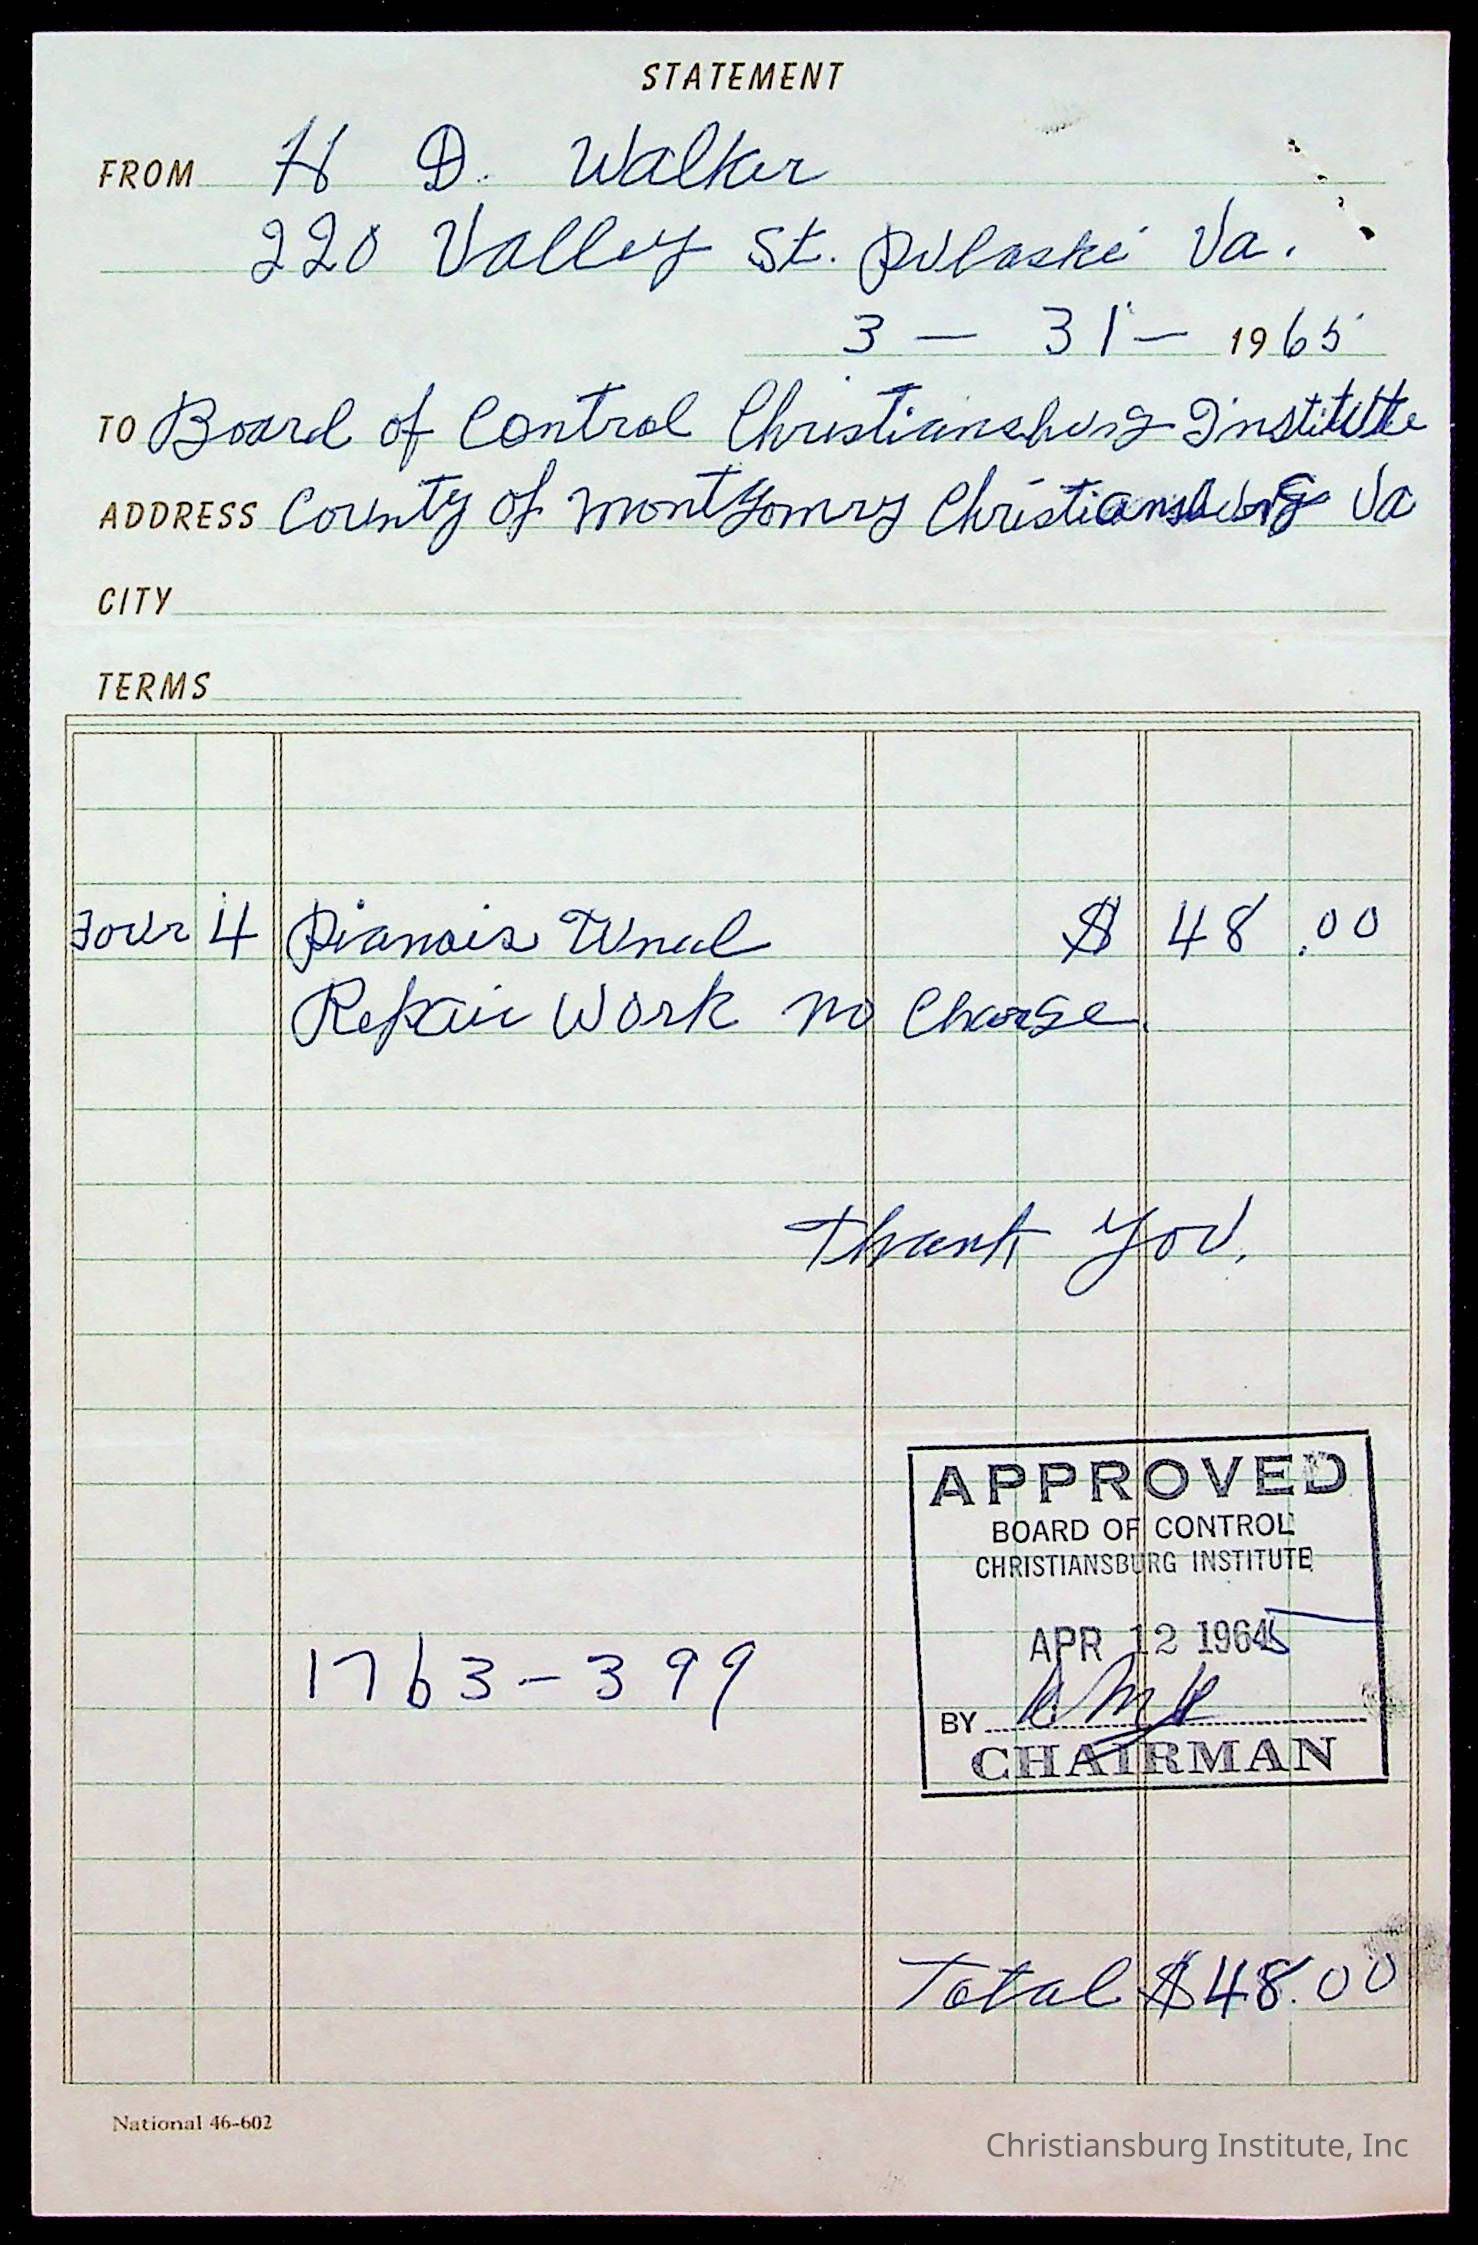 STATEMENT
FROM H D. Walker
220 Valley St. Pulaski Va.
3 - 31 - 1965
TO Board of Control Christiansburg Institute
ADDRESS County of Montgomry Christiansburg Va
CITY
TERMS
Four 4 Pianois Tuned $ 48.00
Repair Work no Charge.
Thank You.
APPROVED
BOARD OF CONTROL
CHRISTIANSBURG INSTITUTE
APR 12 1965
1763-399
BY
CHAIRMAN
Total $48.00
National 46-602
Christiansburg Institute, Inc